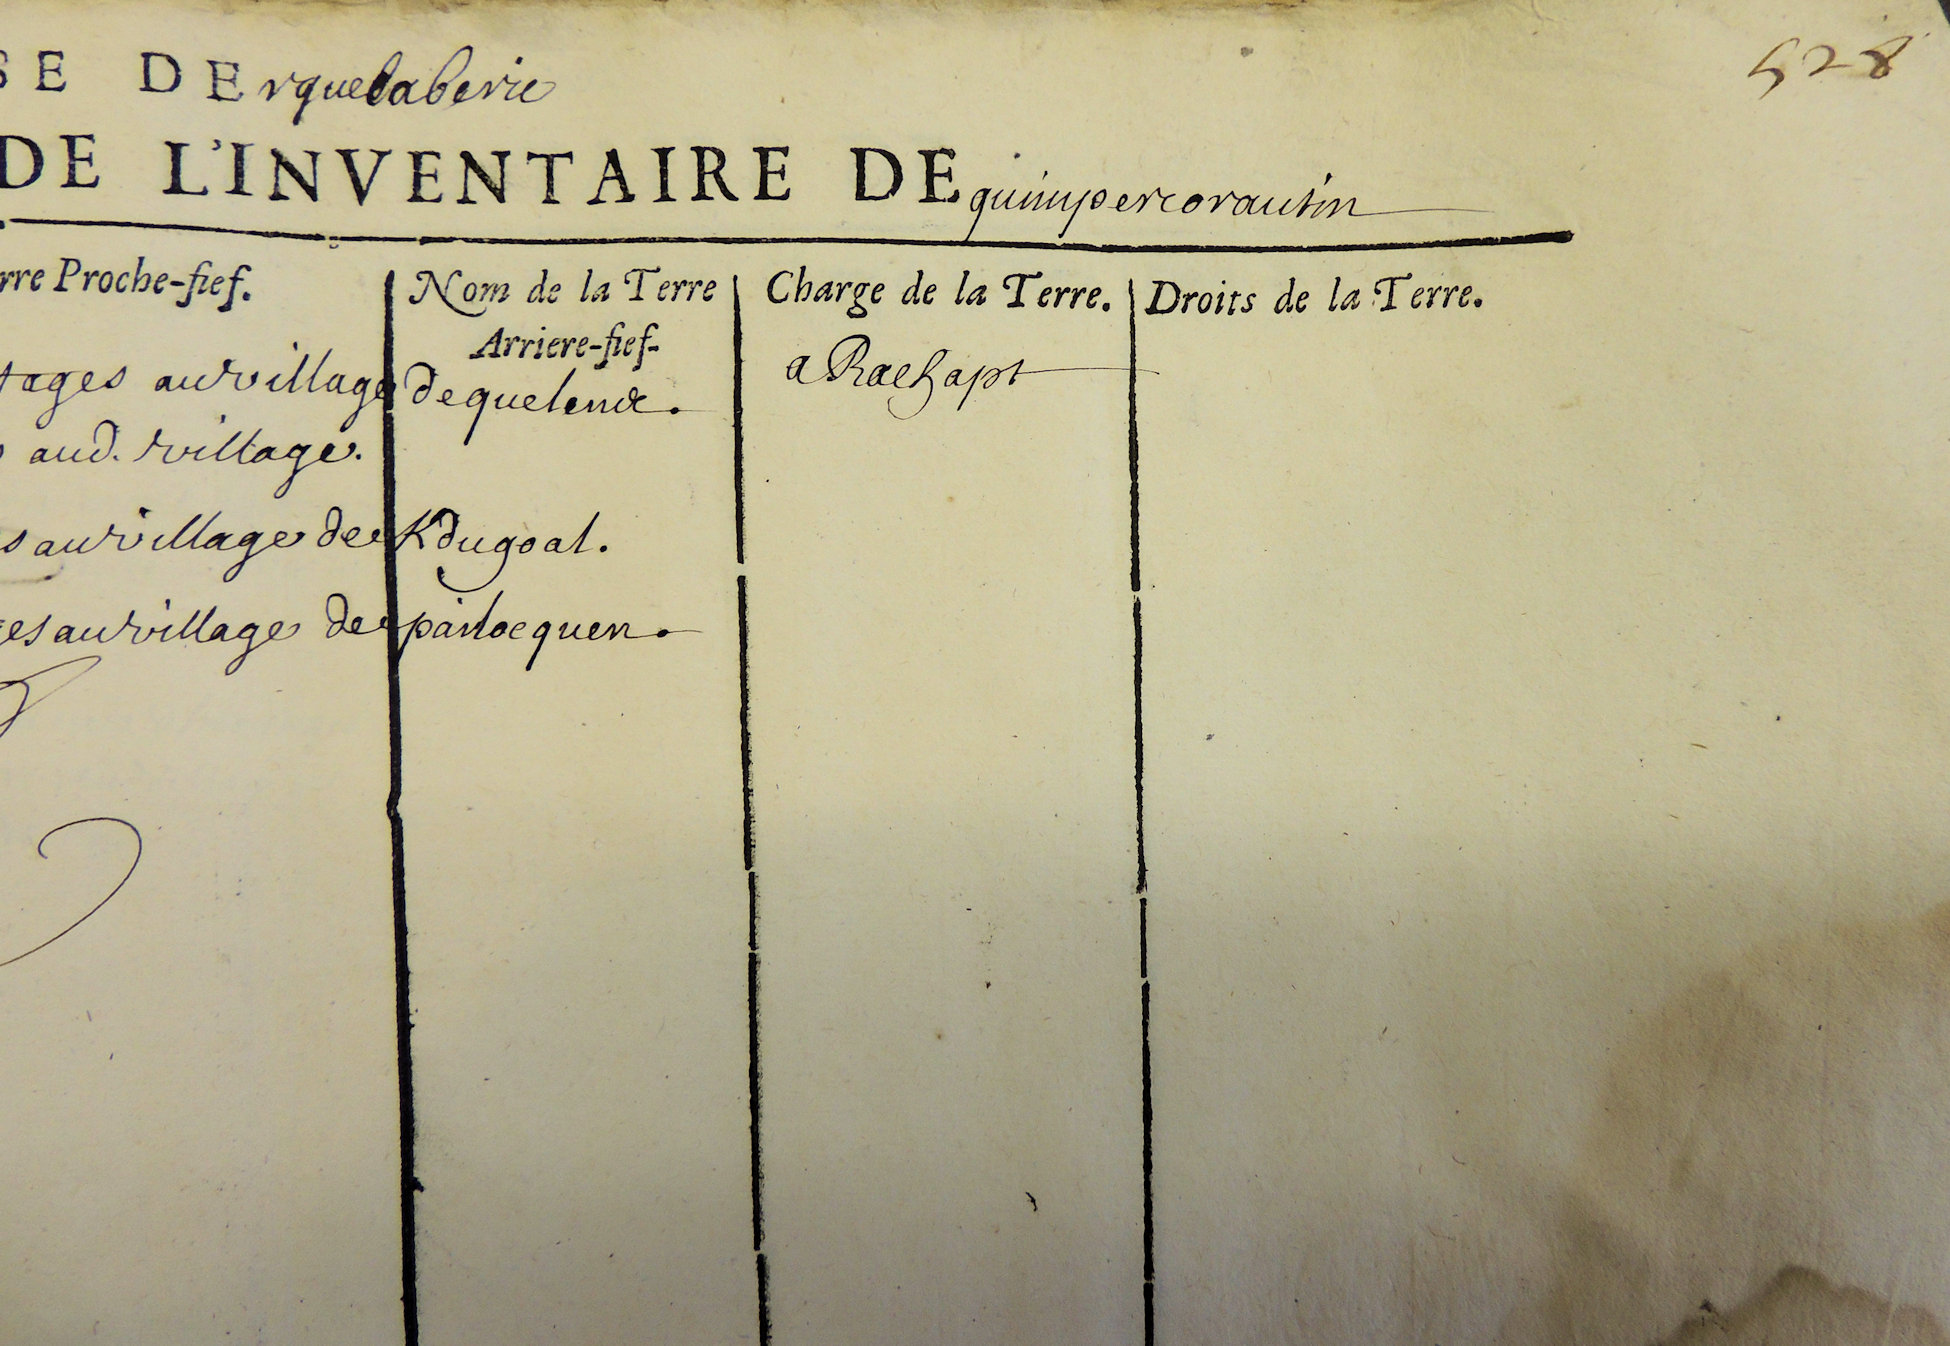 528
SE DErquegaberic
DE L'INVENTAIRE DE quimpercorantin
rre Proche-fief.
Nom de la Terre
Arriere-fief-
Charge de la Terre.
Droits de la Terre.
tages au village dequelene.
a Rachapt
aud. village.
s au village de Kdugoal.
es au village de